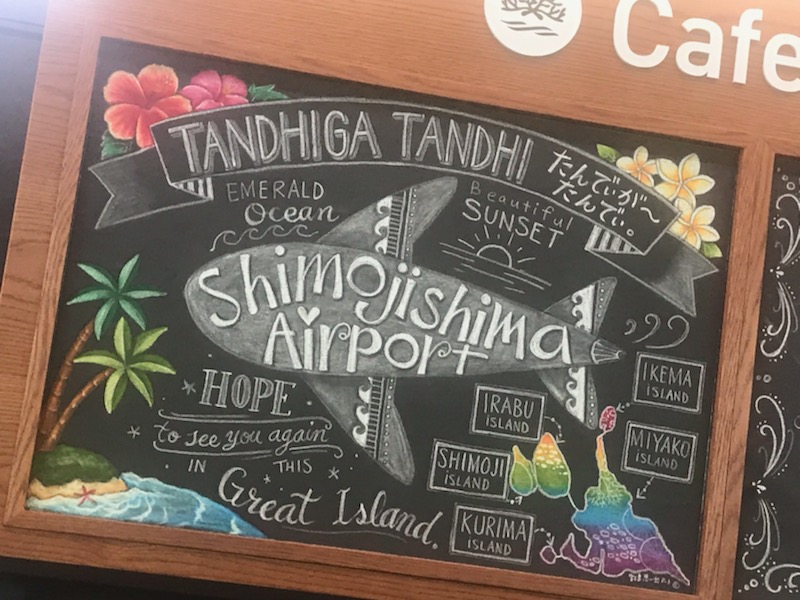 Cafe
TANDHIGA TANDHI
たんでぃが〜
たんでぃ。
EMERALD
Ocean
Beautiful
SUNSET
Shimojishima
Airport
HOPE
to see you again
IN THIS
Great Island.
IKEMA
ISLAND
IRABU
ISLAND
MIYAKO
ISLAND
SHIMOJI
ISLAND
KURIMA
ISLAND